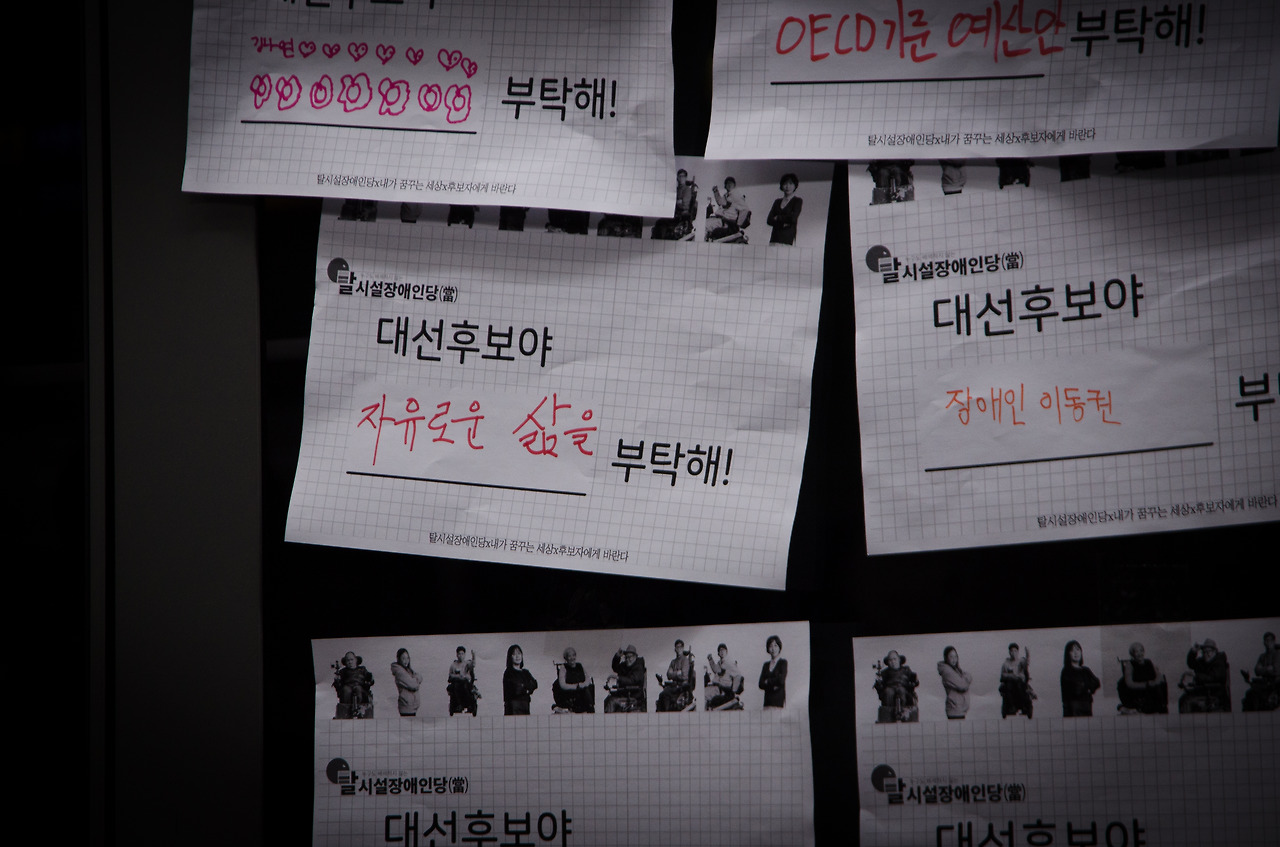 부탁해!
탈시설장애인당x내가 꿈꾸는 세상x후보자에게 바란다
OECD기준 예산안 부탁해!
탈시설장애인당x내가 꿈꾸는 세상x후보자에게 바란다
탈시설장애인당(當)
대선후보야
자유로운 삶을 부탁해!
탈시설장애인당x내가 꿈꾸는 세상x후보자에게 바란다
탈시설장애인당(當)
대선후보야
장애인 이동권
탈시설장애인당x내가 꿈꾸는 세상x후보자에게 바란다
탈시설장애인당(當)
대선후보야
탈시설장애인당(當)
대선후보야